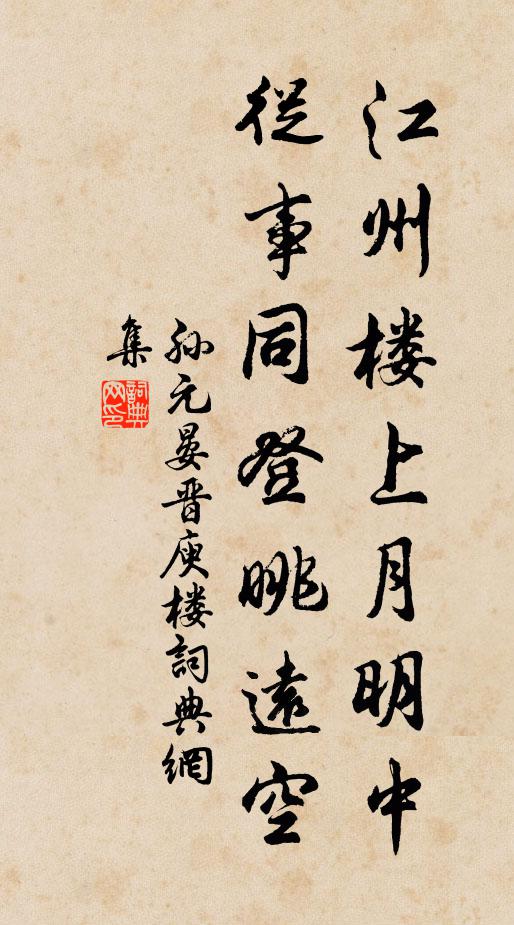 江州楼上月明中
從事同登眺遠空
孙元晏晋庾楼詞典網
集
詞典
网印